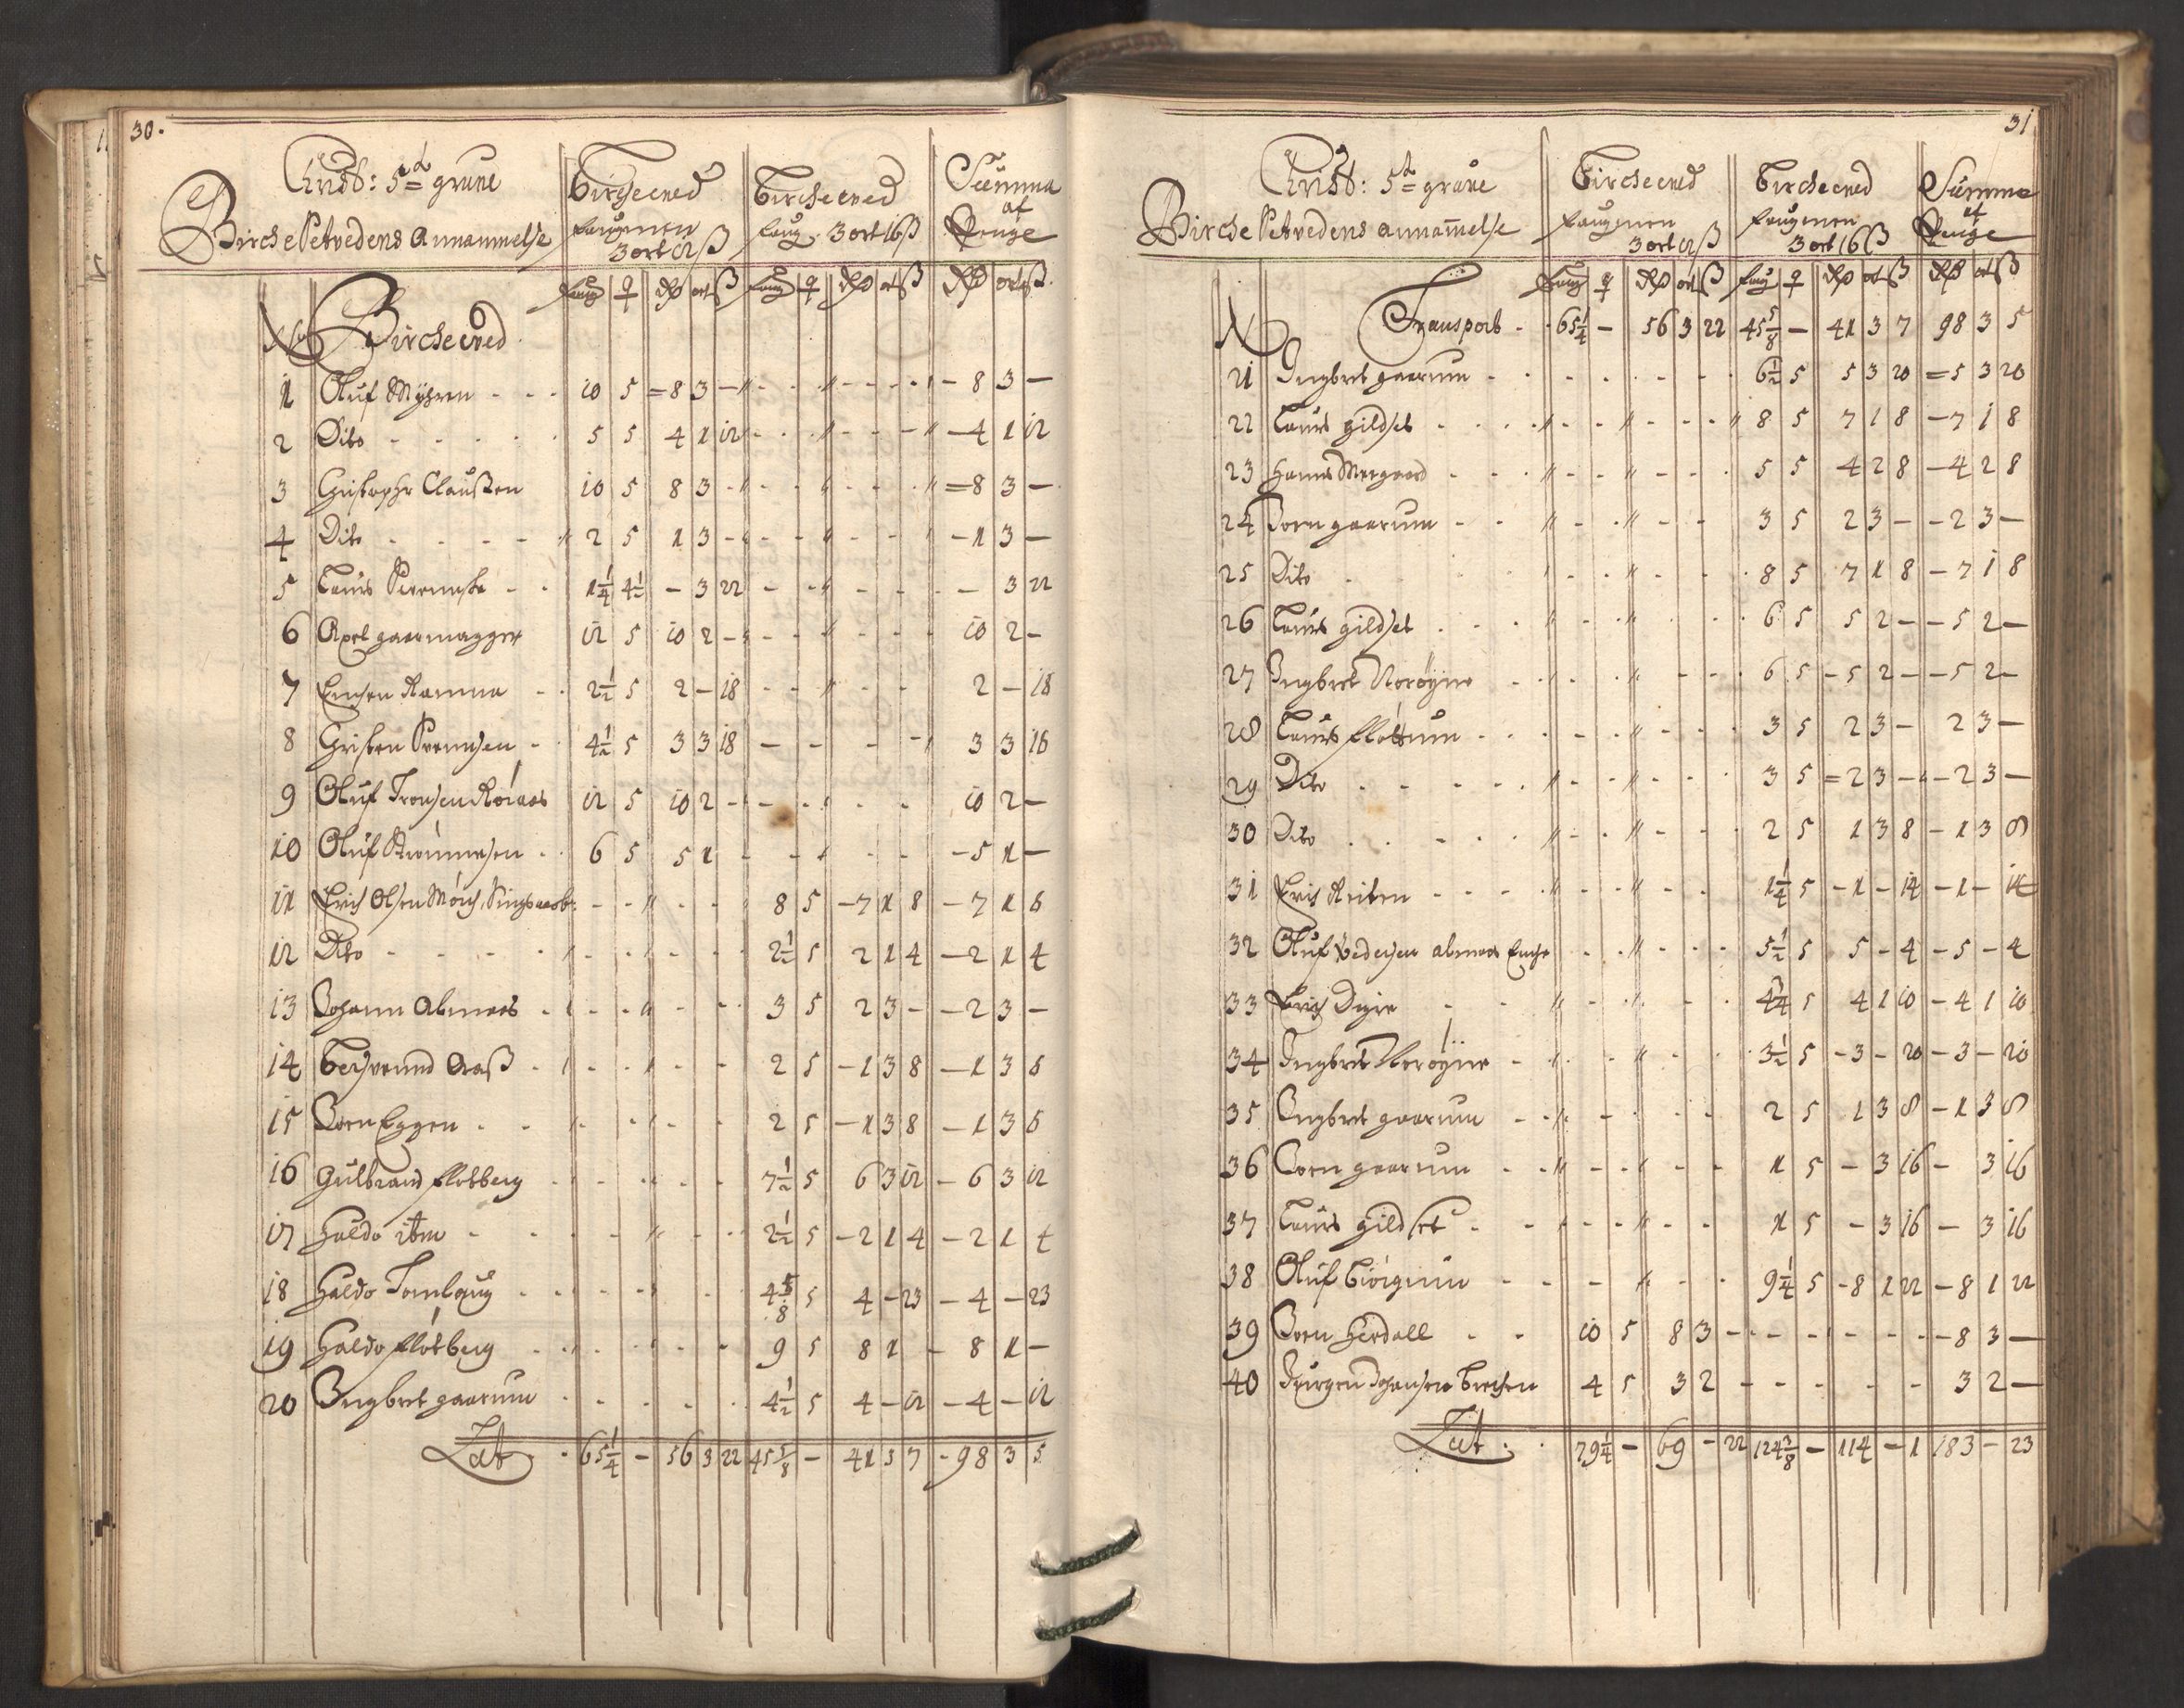 30.
Christ: 5ta grüne
Birche Vetvedens Annammelse
Birche ved faugnen 3 ort 12 ß
Birche ved faug. 3 ort 16 ß
Summa af Penge
Faug q Rd ort ß Faug q Rd ort ß Rd ort ß
No Birche ved
1 Oluf Myhren - - - 10 5 = 8 3 - - 8 3 -
2 Dito - - - - 5 5 4 1 12 - 4 1 12
3 Christopher Claußen 10 5 8 3 - = 8 3 -
4 Dito - - - - 2 5 1 3 - - 1 3 -
5 Laurs - - 1 1/4 4 1/2 - 3 22 - 3 22
6 Axel 12 5 10 2 - 10 2 -
7 Ramna - - 2 1/2 5 2 - 18 2 - 18
8 Christen Svendsen - 4 1/2 5 3 3 18 3 3 18
9 Oluf Tronsen Röraas 12 5 10 2 - 10 2 -
10 Oluf - - 6 5 5 1 - - 5 1 -
11 Erich Olsen Singsaas 8 5 - 7 1 8 - 7 1 8
12 Dito - - - - 2 1/2 5 2 1 4 - 2 1 4
13 Johann Almaas - 3 5 2 3 - - 2 3 -
14 Aaß - 2 5 - 1 3 8 - 1 3 8
15 Joen Eggen - - 2 5 - 1 3 8 - 1 3 8
16 Gulbrand Flotberg 7 1/2 5 6 3 12 - 6 3 12
17 Haldo item - - 2 1/2 5 - 2 1 4 - 2 1 4
18 Haldo 4 5/8 5 4 - 23 - 4 - 23
19 Haldo Flotberg 9 5 8 1 - 8 1 -
20 Ingbret gaarum 4 1/2 5 4 - 12 - 4 - 12
Lat - 65 1/4 - 56 3 22 45 5/8 - 41 3 7 - 98 3 5
31
Christ: 5ta grüne
Birche Vetvedens annamelse
Birche ved faugnen 3 ort 12 ß
Birche ved faugnen 3 ort 16 ß
Summa af Penge
Faug q Rd ort ß Faug q Rd ort ß Rd ort ß
No Transport - - 65 1/4 - 56 3 22 45 5/8 - 41 3 7 98 3 5
21 Ingbret gaarum - 6 1/2 5 5 3 20 = 5 3 20
22 Laurs gildset - 8 5 7 1 8 - 7 1 8
23 Hans Moegaard - 5 5 4 2 8 - 4 2 8
24 Joen gaarum - - 3 5 2 3 - - 2 3 -
25 Dito - 8 5 7 1 8 - 7 1 8
26 Laurs gildset - 6 5 5 2 - - 5 2 -
27 Ingbret Norøyne - 6 5 - 5 2 - - 5 2 -
28 Laurs Flottum - 3 5 2 3 - 2 3 -
29 Dito - - - - 3 5 = 2 3 - - 2 3 -
30 Dito - - - - 2 5 1 3 8 - 1 3 8
31 Erich Reiten - - - 1 1/4 5 - 1 - 14 - 1 - 14
32 Oluf Pedersen almaas 5 1/2 5 5 - 4 - 5 - 4
33 Erich Digre - - 4 3/4 5 4 1 10 - 4 1 10
34 Ingbret Norøyne - 3 1/2 5 - 3 - 20 - 3 - 20
35 Ingbret gaarum - 2 5 1 3 8 - 1 3 8
36 Joen gaarum - - 1 5 - 3 16 - 3 16
37 Laurs gildset - - 1 5 - 3 16 - 3 16
38 Oluf Biörgum - - 9 1/4 5 - 8 1 22 - 8 1 22
39 Joen Herdall - - 10 5 8 3 - - 8 3 -
40 Jürgen Johansen 4 5 3 2 - 3 2 -
Lat. - 79 1/4 - 69 - 22 124 3/8 - 114 - 1 183 - 23